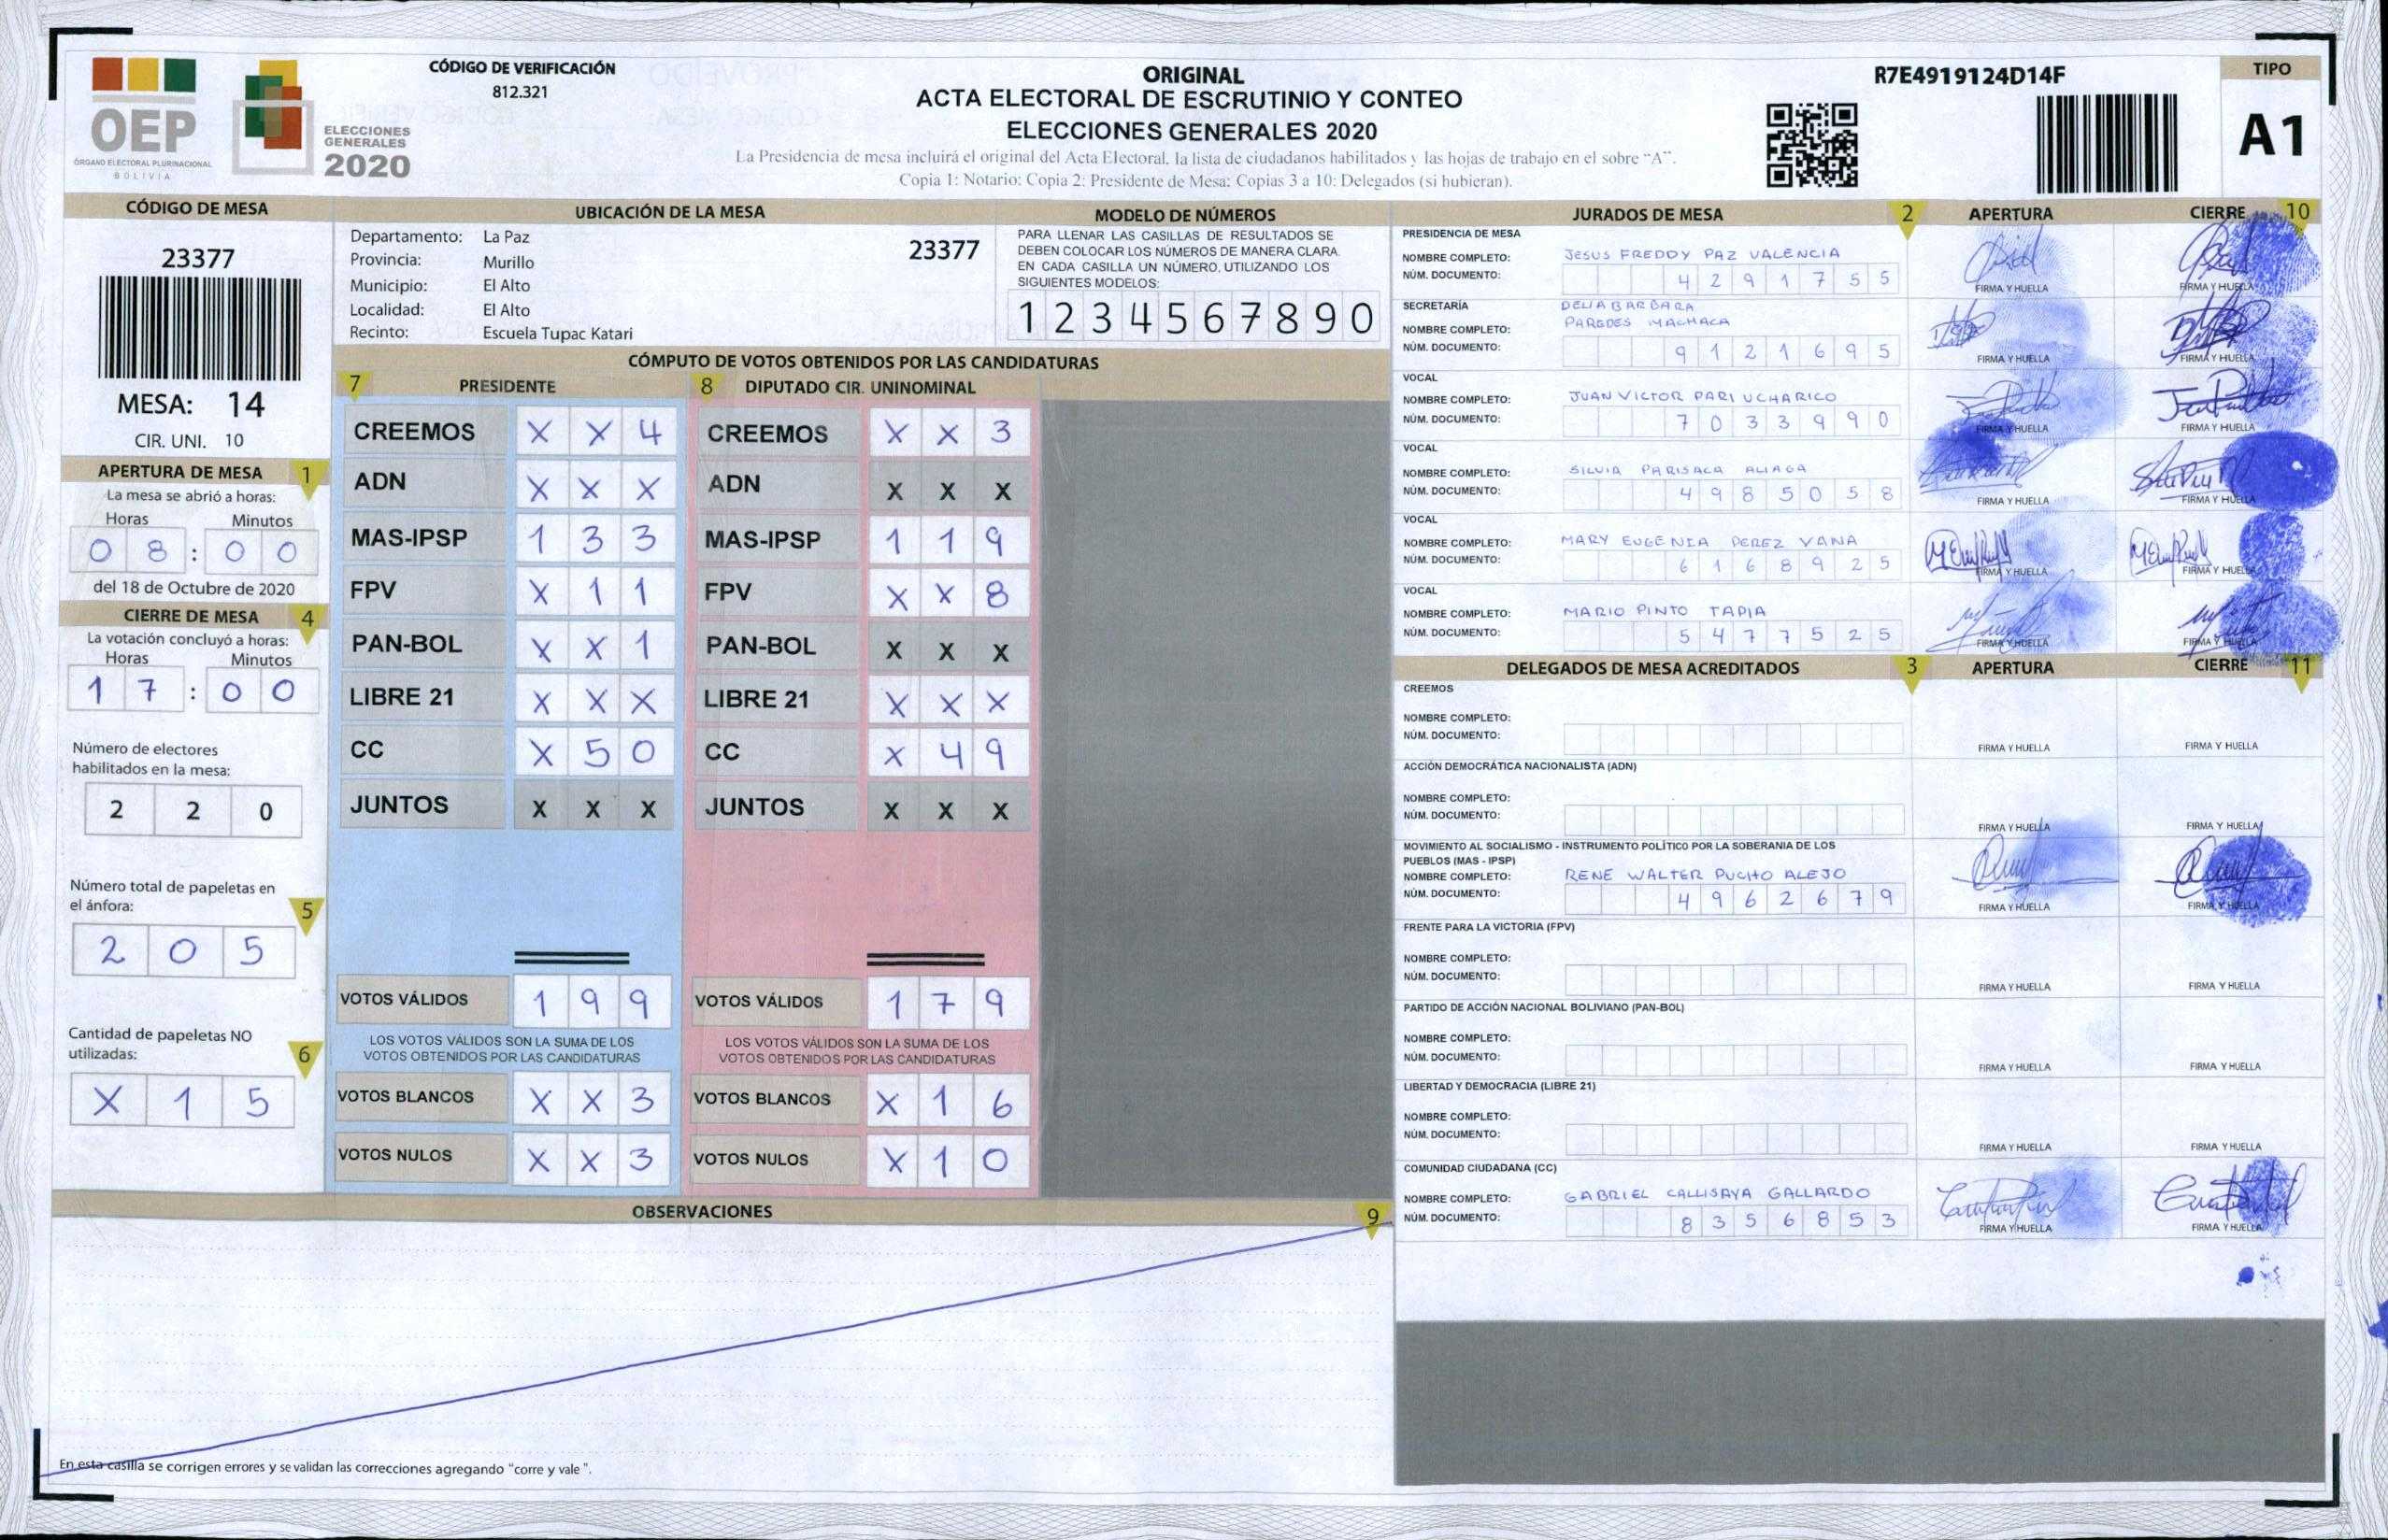 OEP
ÓRGANO ELECTORAL PLURINACIONAL
BOLIVIA
ELECCIONES
GENERALES
2020
CÓDIGO DE VERIFICACIÓN
812.321
ORIGINAL
ACTA ELECTORAL DE ESCRUTINIO Y CONTEO
ELECCIONES GENERALES 2020
La Presidencia de mesa incluirá el original del Acta Electoral, la lista de ciudadanos habilitados y las hojas de trabajo en el sobre "A".
Copia 1: Notario; Copia 2: Presidente de Mesa; Copias 3 a 10: Delegados (si hubieran).
R7E4919124D14F
TIPO
A1
CÓDIGO DE MESA
23377
MESA: 14
CIR. UNI. 10
APERTURA DE MESA 1
La mesa se abrió a horas:
Horas Minutos
0 8 : 0 0
del 18 de Octubre de 2020
CIERRE DE MESA 4
La votación concluyó a horas:
Horas Minutos
1 7 : 0 0
Número de electores
habilitados en la mesa:
2 2 0
Número total de papeletas en
el ánfora: 5
2 0 5
Cantidad de papeletas NO
utilizadas: 6
X 1 5
UBICACIÓN DE LA MESA
Departamento: La Paz
Provincia: Murillo
Municipio: El Alto
Localidad: El Alto
Recinto: Escuela Tupac Katari
23377
MODELO DE NÚMEROS
PARA LLENAR LAS CASILLAS DE RESULTADOS SE
DEBEN COLOCAR LOS NÚMEROS DE MANERA CLARA.
EN CADA CASILLA UN NÚMERO, UTILIZANDO LOS
SIGUIENTES MODELOS:
1 2 3 4 5 6 7 8 9 0
CÓMPUTO DE VOTOS OBTENIDOS POR LAS CANDIDATURAS
7 PRESIDENTE 8 DIPUTADO CIR. UNINOMINAL
CREEMOS X X 4 CREEMOS X X 3
ADN X X X ADN X X X
MAS-IPSP 1 3 3 MAS-IPSP 1 1 9
FPV X 1 1 FPV X X 8
PAN-BOL X X 1 PAN-BOL X X X
LIBRE 21 X X X LIBRE 21 X X X
CC X 5 0 CC X 4 9
JUNTOS X X X JUNTOS X X X
VOTOS VÁLIDOS 1 9 9 VOTOS VÁLIDOS 1 7 9
LOS VOTOS VÁLIDOS SON LA SUMA DE LOS LOS VOTOS VÁLIDOS SON LA SUMA DE LOS
VOTOS OBTENIDOS POR LAS CANDIDATURAS VOTOS OBTENIDOS POR LAS CANDIDATURAS
VOTOS BLANCOS X X 3 VOTOS BLANCOS X 1 6
VOTOS NULOS X X 3 VOTOS NULOS X 1 0
OBSERVACIONES 9
En esta casilla se corrigen errores y se validan las correcciones agregando "corre y vale ".
JURADOS DE MESA 2 APERTURA CIERRE 10
PRESIDENCIA DE MESA
NOMBRE COMPLETO: JESUS FREDDY PAZ VALENCIA
NÚM. DOCUMENTO: 4 2 9 1 7 5 5
FIRMA Y HUELLA FIRMA Y HUELLA
SECRETARÍA DELIA BARBARA
NOMBRE COMPLETO: PAREDES MACHACA
NÚM. DOCUMENTO: 9 1 2 1 6 9 5
FIRMA Y HUELLA FIRMA Y HUELLA
VOCAL
NOMBRE COMPLETO: JUAN VICTOR PARI UCHARICO
NÚM. DOCUMENTO: 7 0 3 3 9 9 0
FIRMA Y HUELLA FIRMA Y HUELLA
VOCAL
NOMBRE COMPLETO: SILVIA PARISACA ALIAGA
NÚM. DOCUMENTO: 4 9 8 5 0 5 8
FIRMA Y HUELLA FIRMA Y HUELLA
VOCAL
NOMBRE COMPLETO: MARY EUGENIA PEREZ VANA
NÚM. DOCUMENTO: 6 1 6 8 9 2 5
FIRMA Y HUELLA FIRMA Y HUELLA
VOCAL
NOMBRE COMPLETO: MARIO PINTO TAPIA
NÚM. DOCUMENTO: 5 4 7 7 5 2 5
FIRMA Y HUELLA FIRMA Y HUELLA
DELEGADOS DE MESA ACREDITADOS 3 APERTURA CIERRE 11
CREEMOS
NOMBRE COMPLETO:
NÚM. DOCUMENTO:
FIRMA Y HUELLA FIRMA Y HUELLA
ACCIÓN DEMOCRÁTICA NACIONALISTA (ADN)
NOMBRE COMPLETO:
NÚM. DOCUMENTO:
FIRMA Y HUELLA FIRMA Y HUELLA
MOVIMIENTO AL SOCIALISMO - INSTRUMENTO POLÍTICO POR LA SOBERANIA DE LOS
PUEBLOS (MAS - IPSP)
NOMBRE COMPLETO: RENE WALTER PUCHO ALEJO
NÚM. DOCUMENTO: 4 9 6 2 6 7 9
FIRMA Y HUELLA FIRMA Y HUELLA
FRENTE PARA LA VICTORIA (FPV)
NOMBRE COMPLETO:
NÚM. DOCUMENTO:
FIRMA Y HUELLA FIRMA Y HUELLA
PARTIDO DE ACCIÓN NACIONAL BOLIVIANO (PAN-BOL)
NOMBRE COMPLETO:
NÚM. DOCUMENTO:
FIRMA Y HUELLA FIRMA Y HUELLA
LIBERTAD Y DEMOCRACIA (LIBRE 21)
NOMBRE COMPLETO:
NÚM. DOCUMENTO:
FIRMA Y HUELLA FIRMA Y HUELLA
COMUNIDAD CIUDADANA (CC)
NOMBRE COMPLETO: GABRIEL CALLISAYA GALLARDO
NÚM. DOCUMENTO: 8 3 5 6 8 5 3
FIRMA Y HUELLA FIRMA Y HUELLA